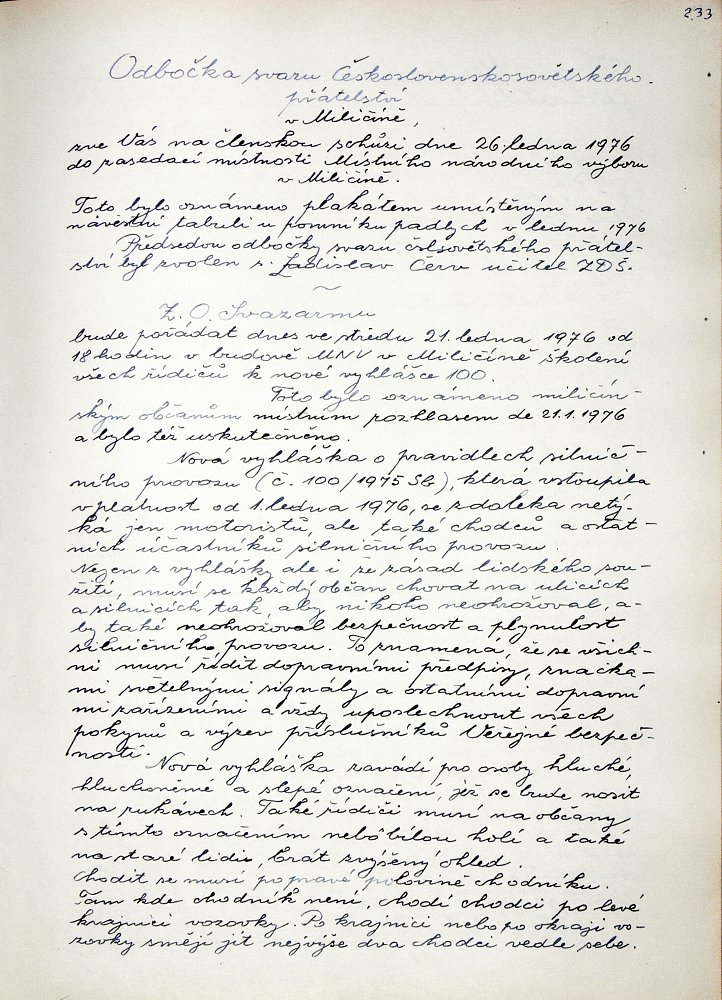 233
Odbočka svazu Československosovětského
přátelství
v Miličíně,
zve Vás na členskou schůzi dne 26. ledna 1976
do zasedací místnosti Místního národního výboru
v Miličíně.
Toto bylo oznámeno plakátem umístěným na
návěstní tabuli u pomníku padlých v lednu 1976
Předsedou odbočky svazu čslsovětského přátel-
ství byl zvolen s. Ladislav Červ učitel ZDŠ.
~
Z. O. Svazarmu
bude pořádat dnes ve středu 21. ledna 1976 od
18 hodin v budově MNV v Miličíně školení
všech řidičů k nové vyhlášce 100.
Toto bylo oznámeno miličín-
ským občanům místním rozhlasem de 21.1.1976
a bylo též uskutečněno.
Nová vyhláška o pravidlech silnič-
ního provozu (č. 100/1975 Sb), která vstoupila
v platnost od 1. ledna 1976, se zdaleka netý-
ká jen motoristů, ale také chodců a ostat-
ních účastníků silničního provozu.
Nejen z vyhlášky ale i ze zásad lidského sou-
žití, musí se každý občan chovat na ulicích
a silnicích tak, aby nikoho neohrožoval, a-
by také neohrožoval bezpečnost a plynulost
silničního provozu. To znamená, že se všich-
ni musí řídit dopravními předpisy, značka-
mi světelnými signály a ostatními dopravní
mi zařízeními a vždy uposlechnout všech
pokynů a výzev příslušníků Veřejné bezpeč-
nosti.
Nová vyhláška zavádí pro osoby hluché,
hluchoněmé a slepé označení, jež se bude nosit
na rukávech. Také řidiči musí na občany
s tímto označením nebo bílou holí a také
na staré lidi, brát zvýšený ohled.
Chodit se musí po pravé polovině chodníku.
Tam kde chodník není, chodí chodci po levé
krajnici vozovky. Po krajnici nebo po okraji vo-
zovky smějí jít nejvýše dva chodci vedle sebe.